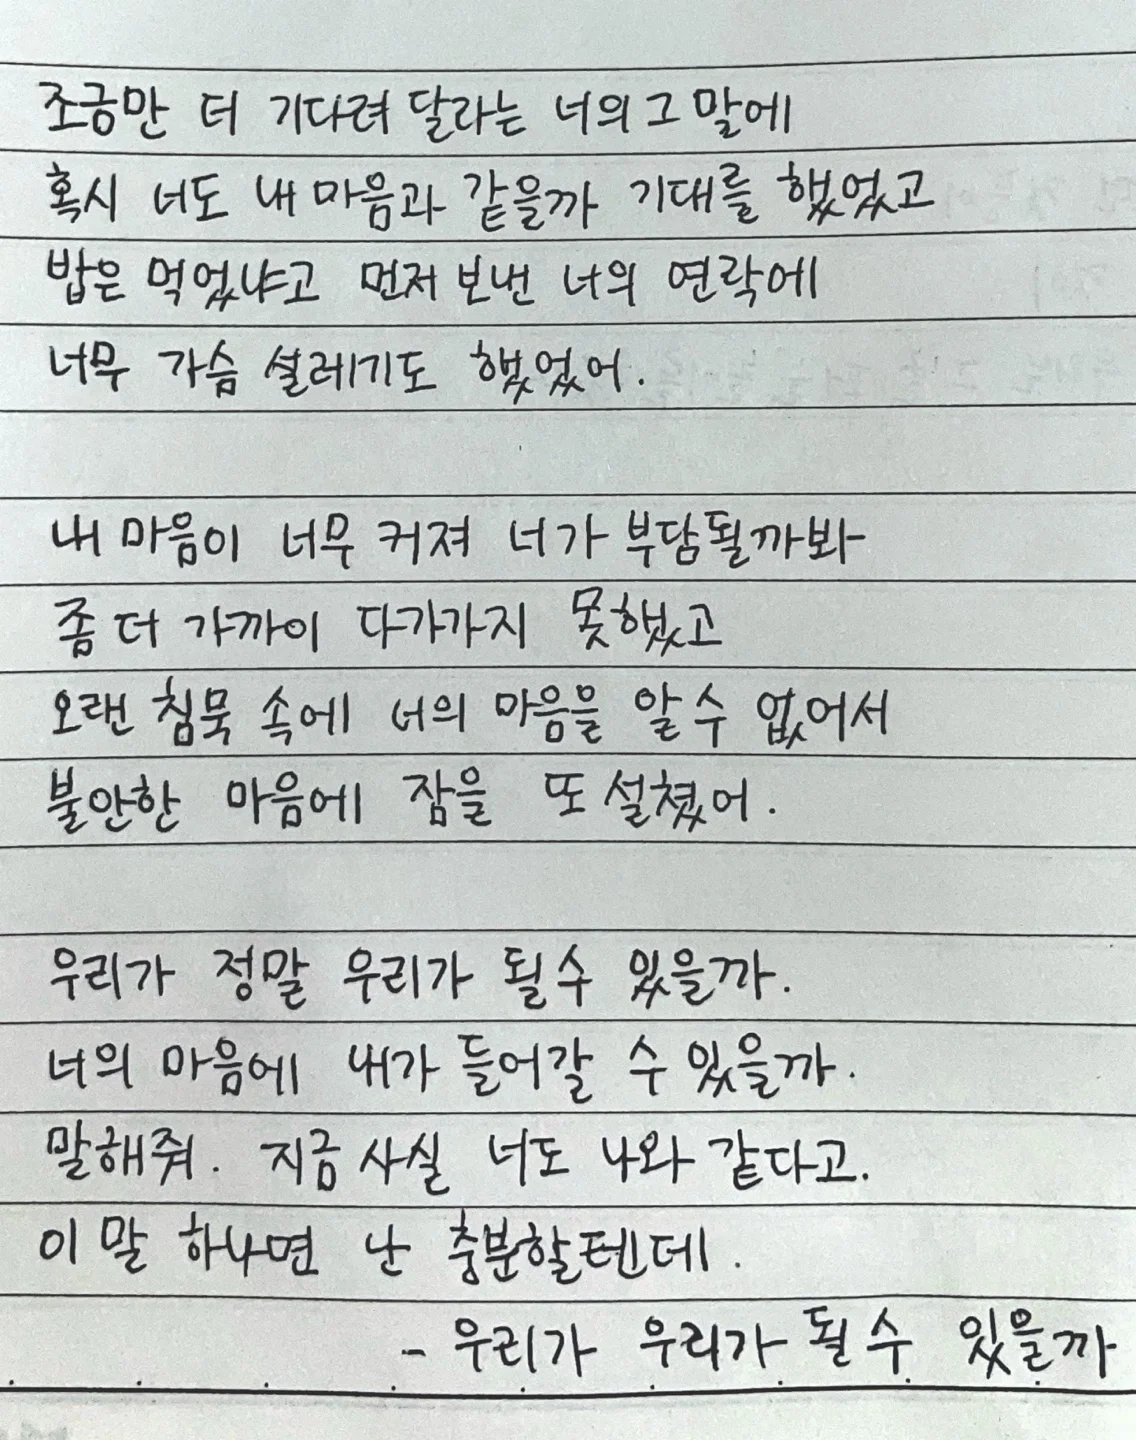 조금만 더 기다려 달라는 너의 그 말에
혹시 너도 내 마음과 같을까 기대를 했었고
밥은 먹었냐고 먼저 보낸 너의 연락에
너무 가슴 설레기도 했었어.
내 마음이 너무 커져 너가 부담될까봐
좀 더 가까이 다가가지 못했고
오랜 침묵 속에 너의 마음을 알 수 없어서
불안한 마음에 잠을 또 설쳤어.
우리가 정말 우리가 될 수 있을까.
너의 마음에 내가 들어갈 수 있을까.
말해줘. 지금 사실 너도 나와 같다고.
이 말 하나면 난 충분할텐데.
- 우리가 우리가 될 수 있을까